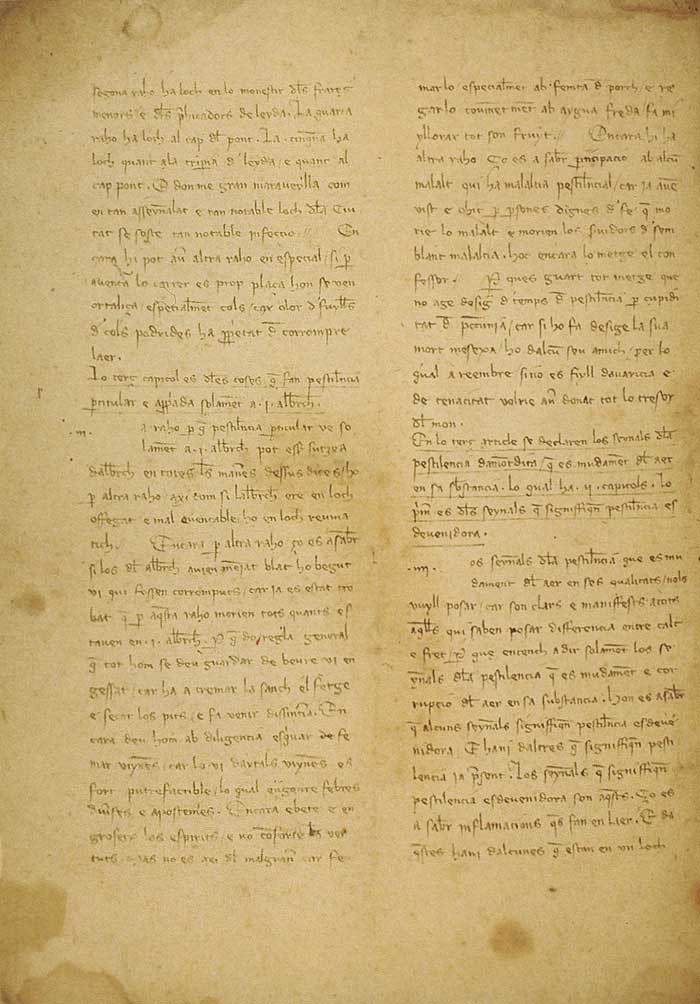 segona raho ha loch en lo monestir dls frares
menors e dls p̃licadors de leyda. La quarta
raho ha loch al cap dl pont. La cinq̃na ha
loch quant ala d leyda e quant al
cap pont. E donme gran maraveylla com
en tan assenalat e tan notable loch dla Ciu
tat se soste tan notable infeccio // En
cara hi pot au altra raho en especial / si p
aventura lo carrer es prop plaça hon se ven
ortaliça / especialment cols / car olor d fuylls
d cols podrides ha p̃pietat d corrompre
laer.
Lo terç capitol es dles coses q̃ fan pestilẽcia
p̃ticular e app̃ada solamet a .i. alb̃rch.
.iii. a raho p q̃ pestilẽcia p̃ticular ve so
lamet a .i. alberch pot ess̃
dalb̃rch en totes les maneres dessus dites / ho
p altra raho axi com si lalberch ere en loch
offegat e mal eventable / ho en loch reuma
tich. Encara p altra raho ço es a sab̃r
si los dl alberch avien mẽjat blat ho begut
vi qui fossen corromputs / car ja es estat tro
bat q̃ p aq̃sta raho morien tots quants es
taven en .i. alb̃rch. P q̃ do regla general
q̃ tot hom se deu guardar de beure vi en
gessat / car ha a cremar la sanch el fetge
e secar los pits / e fa venir En
cara deu hom ab diligencia esq̃var de fe
mar vinyes / car lo vi daytals vinyes es
fort putrefactible / lo qual engenre febres
div̾ses e apostemes. Encara ebete e en
grosex los espirits / e no conforte les ver
tuts. Mas no es axi dl malgran̾ car fe
marlo especialmet ab femta d porch / e re
garlo covinentmet ab aygua freda / fa mi
yllorar tot son fruyt. // Encara hi ha
altra raho Ço es a sab̃r p̃ticipacio ab alcu
malalt qui ha malaltia pestilẽcial / car ja avẽ
vist e ohit p p̃sones dignes d fe q̃ mo
rie lo malalt e morien los s̃vidors d sem
blant malaltia. hoc encara lo metge el con
fessor. P ques guart tot metge que
no age desig d temps d pestilẽcia p cupidi
tat d peccunia / car si ho fa desige la sua
mort mesexa / ho dalcu seu amich / per lo
qual a reembre si no es fiyll davaricia e
de tenacitat volrie au donat tot lo tresor
dl mon.
En lo terç article se declaren los senyals dla
pestilencia damõt dita / q̃ es mudamet dl aer
en sa substancia. Lo qual ha .ii. capitols. Lo
p̃m es dls senyals q̃ signiffiq̃n pestilẽcia es
devenidora.
.iiii. os senyals dla pestilẽcia que es mu
dament dl aer en ses qualitats / nols
vuyll posar / car son clars e maniffests a tots
aq̃lls qui saben posar differencia entre calt
e fret / P que entench a dir solamẽt los se
nyals dla pestilencia q̃ es mudamet e cor
rupcio dl aer en sa substancia. Hon es a sab̃r
q̃ alcuns senyals signiffiq̃n pestilẽcia esdeve
nidora / E hani daltres q̃ signiffiq̃n pesti
lencia ja p̃sent. Los senyals q̃ signiffiq̃n
pestilencia esdevenidora son aq̃sts. Ço es
a sab̃r inflamacions q̃s fan en laer. E da
q̃stes hani dalcunes q̃ estan en un loch